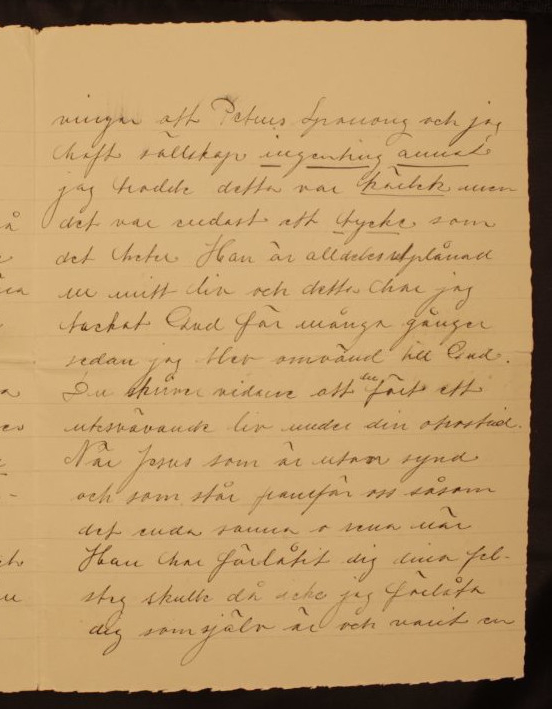 ningar att Petrus Sprauong och jag
haft sällskap ingenting annat
jag trodde detta var kärlek men
det var endast ett tycke som
det heter Han är alldeles utplånad
ur mitt liv och detta har jag
tackat Gud för många gånger
sedan jag blev omvänd till Gud.
Du skriver vidare att du fört ett
utsvävande liv under din
När Jesus som är utan synd
och som står framför oss såsom
det enda sanna o rena när
Han har förlåtit dig dina fel-
steg skulle då icke jag förlåta
dig som själv är och varit en